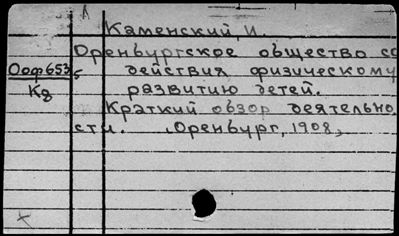 А
Каменский, И.
Оренбургское общество со
Ооф653
действия физическому
К8
развитию детей.
Краткий обзор деятельно
сти. Оренбург, 1908,